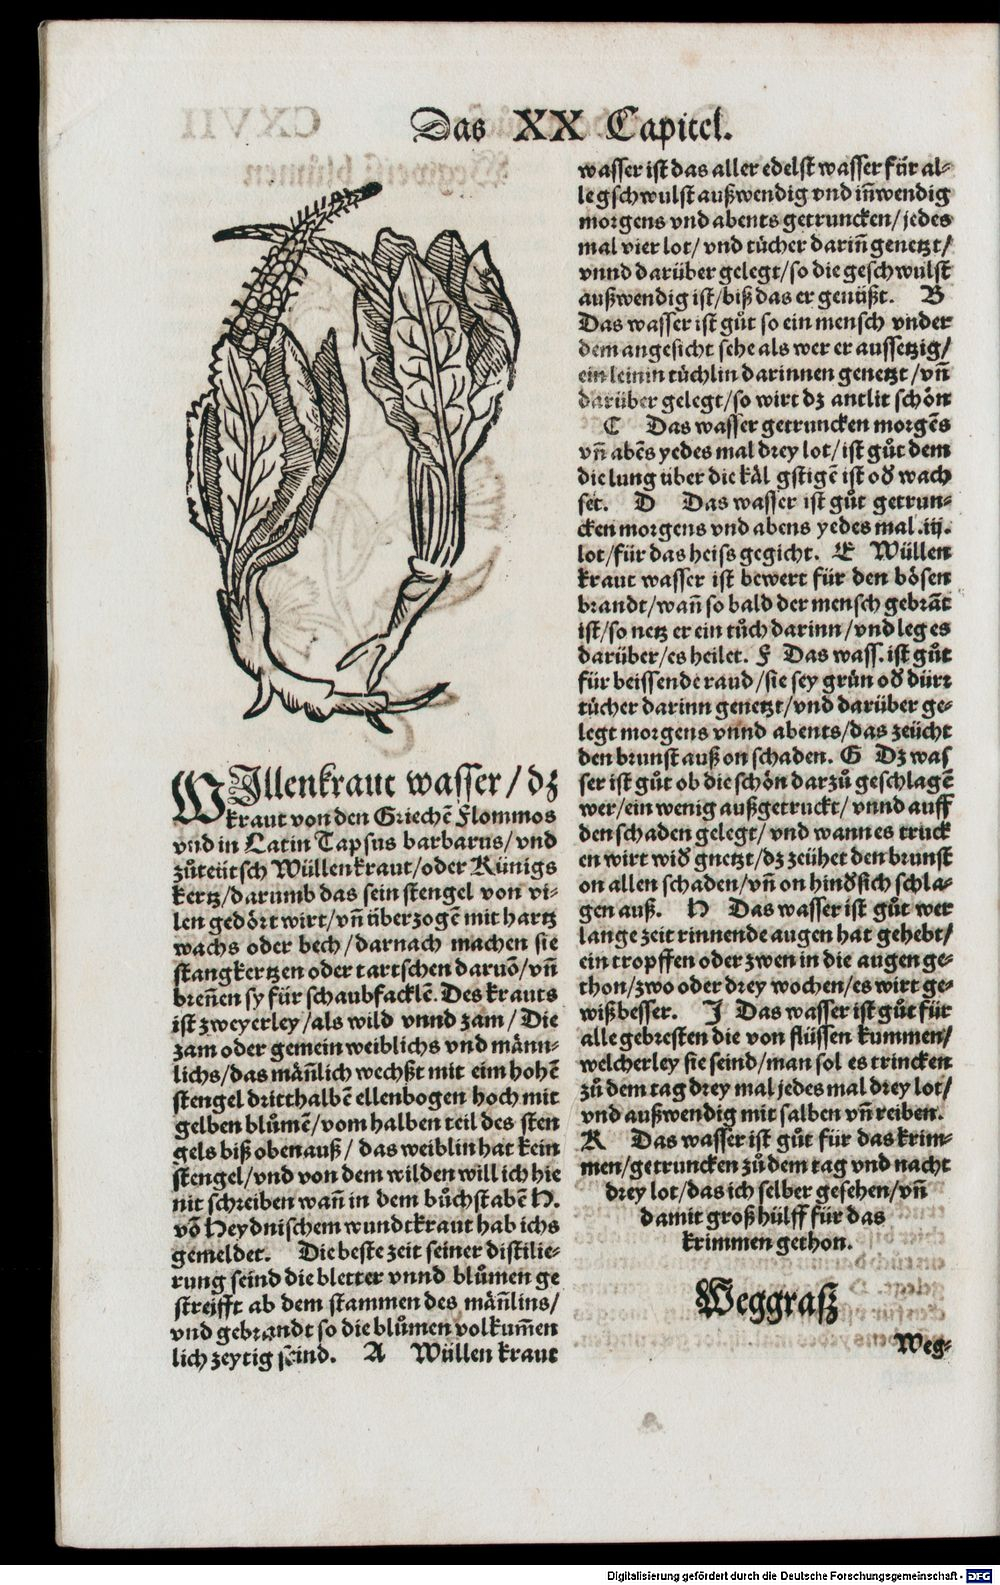 Das XX Capitel.
WJllenkraut wasser / dz
kraut von den Griechē Flommos
vnd in Latin Tapsus barbarus / vnd
zůteütsch Wüllenkraut / oder Künigs
kertz / darumb das sein stengel von vi-
len gedört wirt / vñ überzogē mit hartz
wachs oder bech / darnach machen sie
stangkertzen oder tartschen daruō / vñ
breñen sy für schaubfacklē. Des krauts
ist zweyerley / als wild vnnd zam / Die
zam oder gemein weiblichs vnd männ-
lichs / das mäñlich wechßt mit eim hohē
stengel dritthalbē ellenbogen hoch mit
gelben blůmē / vom halben teil des sten
gels biß oben auß / das weiblin hat kein
stengel / vnd von dem wilden will ich hie
nit schreiben wañ in dem bůchstabē H.
vō Heydnischem wundtkraut hab ichs
gemeldet. Die beste zeit seiner distilie-
rung seind die bletter vnnd blůmen ge
streifft ab dem stammen des mäñlins /
vnd gebrandt so die blůmen volkum̃en
lich zeytig seind. A Wüllen kraut
wasser ist das aller edelst wasser für al-
le gschwulst außwendig vnd iñwendig
morgens vnd abents getruncken / jedes
mal vier lot / vnd tücher dariñ genetzt /
vnnd darüber gelegt / so die geschwulst
außwendig ist / biß das er genüßt. B
Das wasser ist gůt so ein mensch vnder
dem angesicht sehe als wer er aussetzig /
ein leinin tüchlin darinnen genetzt / vñ
darüber gelegt / so wirt dz antlit schön
C Das wasser getruncken morgēs
vñ abēs yedes mal drey lot / ist gůt dem
die lung über die käl gstigē ist oď wach
set. D Das wasser ist gůt getrun-
cken morgens vnd abens yedes mal .iij.
lot / für das heiss gegicht. E Wüllen
kraut wasser ist bewert für den bösen
brandt / wañ so bald der mensch gebrāt
ist / so netz er ein tůch darinn / vnd leg es
darüber / es heilet. F Das wass. ist gůt
für beissende raud / sie sey grün oď dürr
tücher darinn genetzt / vnd darüber ge-
legt morgens vnnd abents / das zeücht
den brunst auß on schaden. G Dz was
ser ist gůt ob die schön darzů geschlagē
wer / ein wenig außgetruckt / vnnd auff
den schaden gelegt / vnd wann es truck
en wirt wiď gnetzt / dz zeühet den brunst
on allen schaden / vñ on hinďsich schla-
gen auß. H Das wasser ist gůt wer
lange zeit rinnende augen hat gehebt /
ein tropffen oder zwen in die augen ge-
thon / zwo oder drey wochen / es wirt ge-
wiß besser. J Das wasser ist gůt für
alle gebresten die von flüssen kummen /
welcherley sie seind / man sol es trincken
zů dem tag drey mal jedes mal drey lot /
vnd außwendig mit salben vñ reiben.
K Das wasser ist gůt für das krim-
men / getruncken zů dem tag vnd nacht
drey lot / das ich selber gesehen / vñ
damit groß hülff für das
krimmen gethon.
Weggraß
Weg-
Digitalisierung gefördert durch die Deutsche Forschungsgemeinschaft - DFG